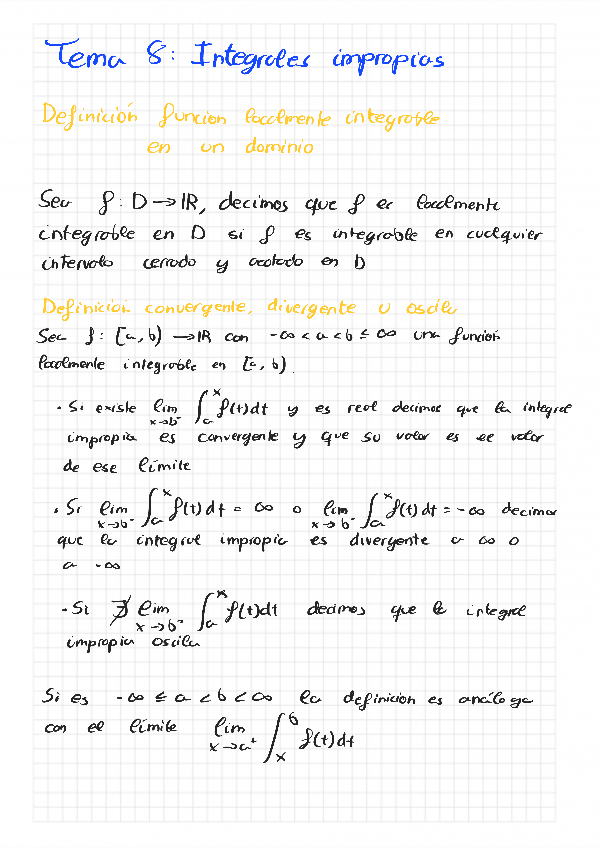 Tema 8: Integrales impropias
Definición función localmente integrable
en un dominio
Sea f: D → ℝ, decimos que f es localmente
integrable en D si f es integrable en cualquier
intervalo cerrado y acotado en D
Definición convergente, divergente u oscila
Sea f: [a, b) → ℝ con -∞ < a < b ≤ ∞ una función
localmente integrable en [a, b).
· Si existe lim_{x→b⁻} ∫_a^x f(t)dt y es real decimos que la integral
impropia es convergente y que su valor es el valor
de ese límite
· Si lim_{x→b⁻} ∫_a^x f(t)dt = ∞ o lim_{x→b⁻} ∫_a^x f(t)dt = -∞ decimos
que la integral impropia es divergente a ∞ o
a -∞
- Si ∄ lim_{x→b⁻} ∫_a^x f(t)dt decimos que la integral
impropia oscila
Si es -∞ ≤ a < b < ∞ la definición es análoga
con el límite lim_{x→a⁺} ∫_x^b f(t)dt